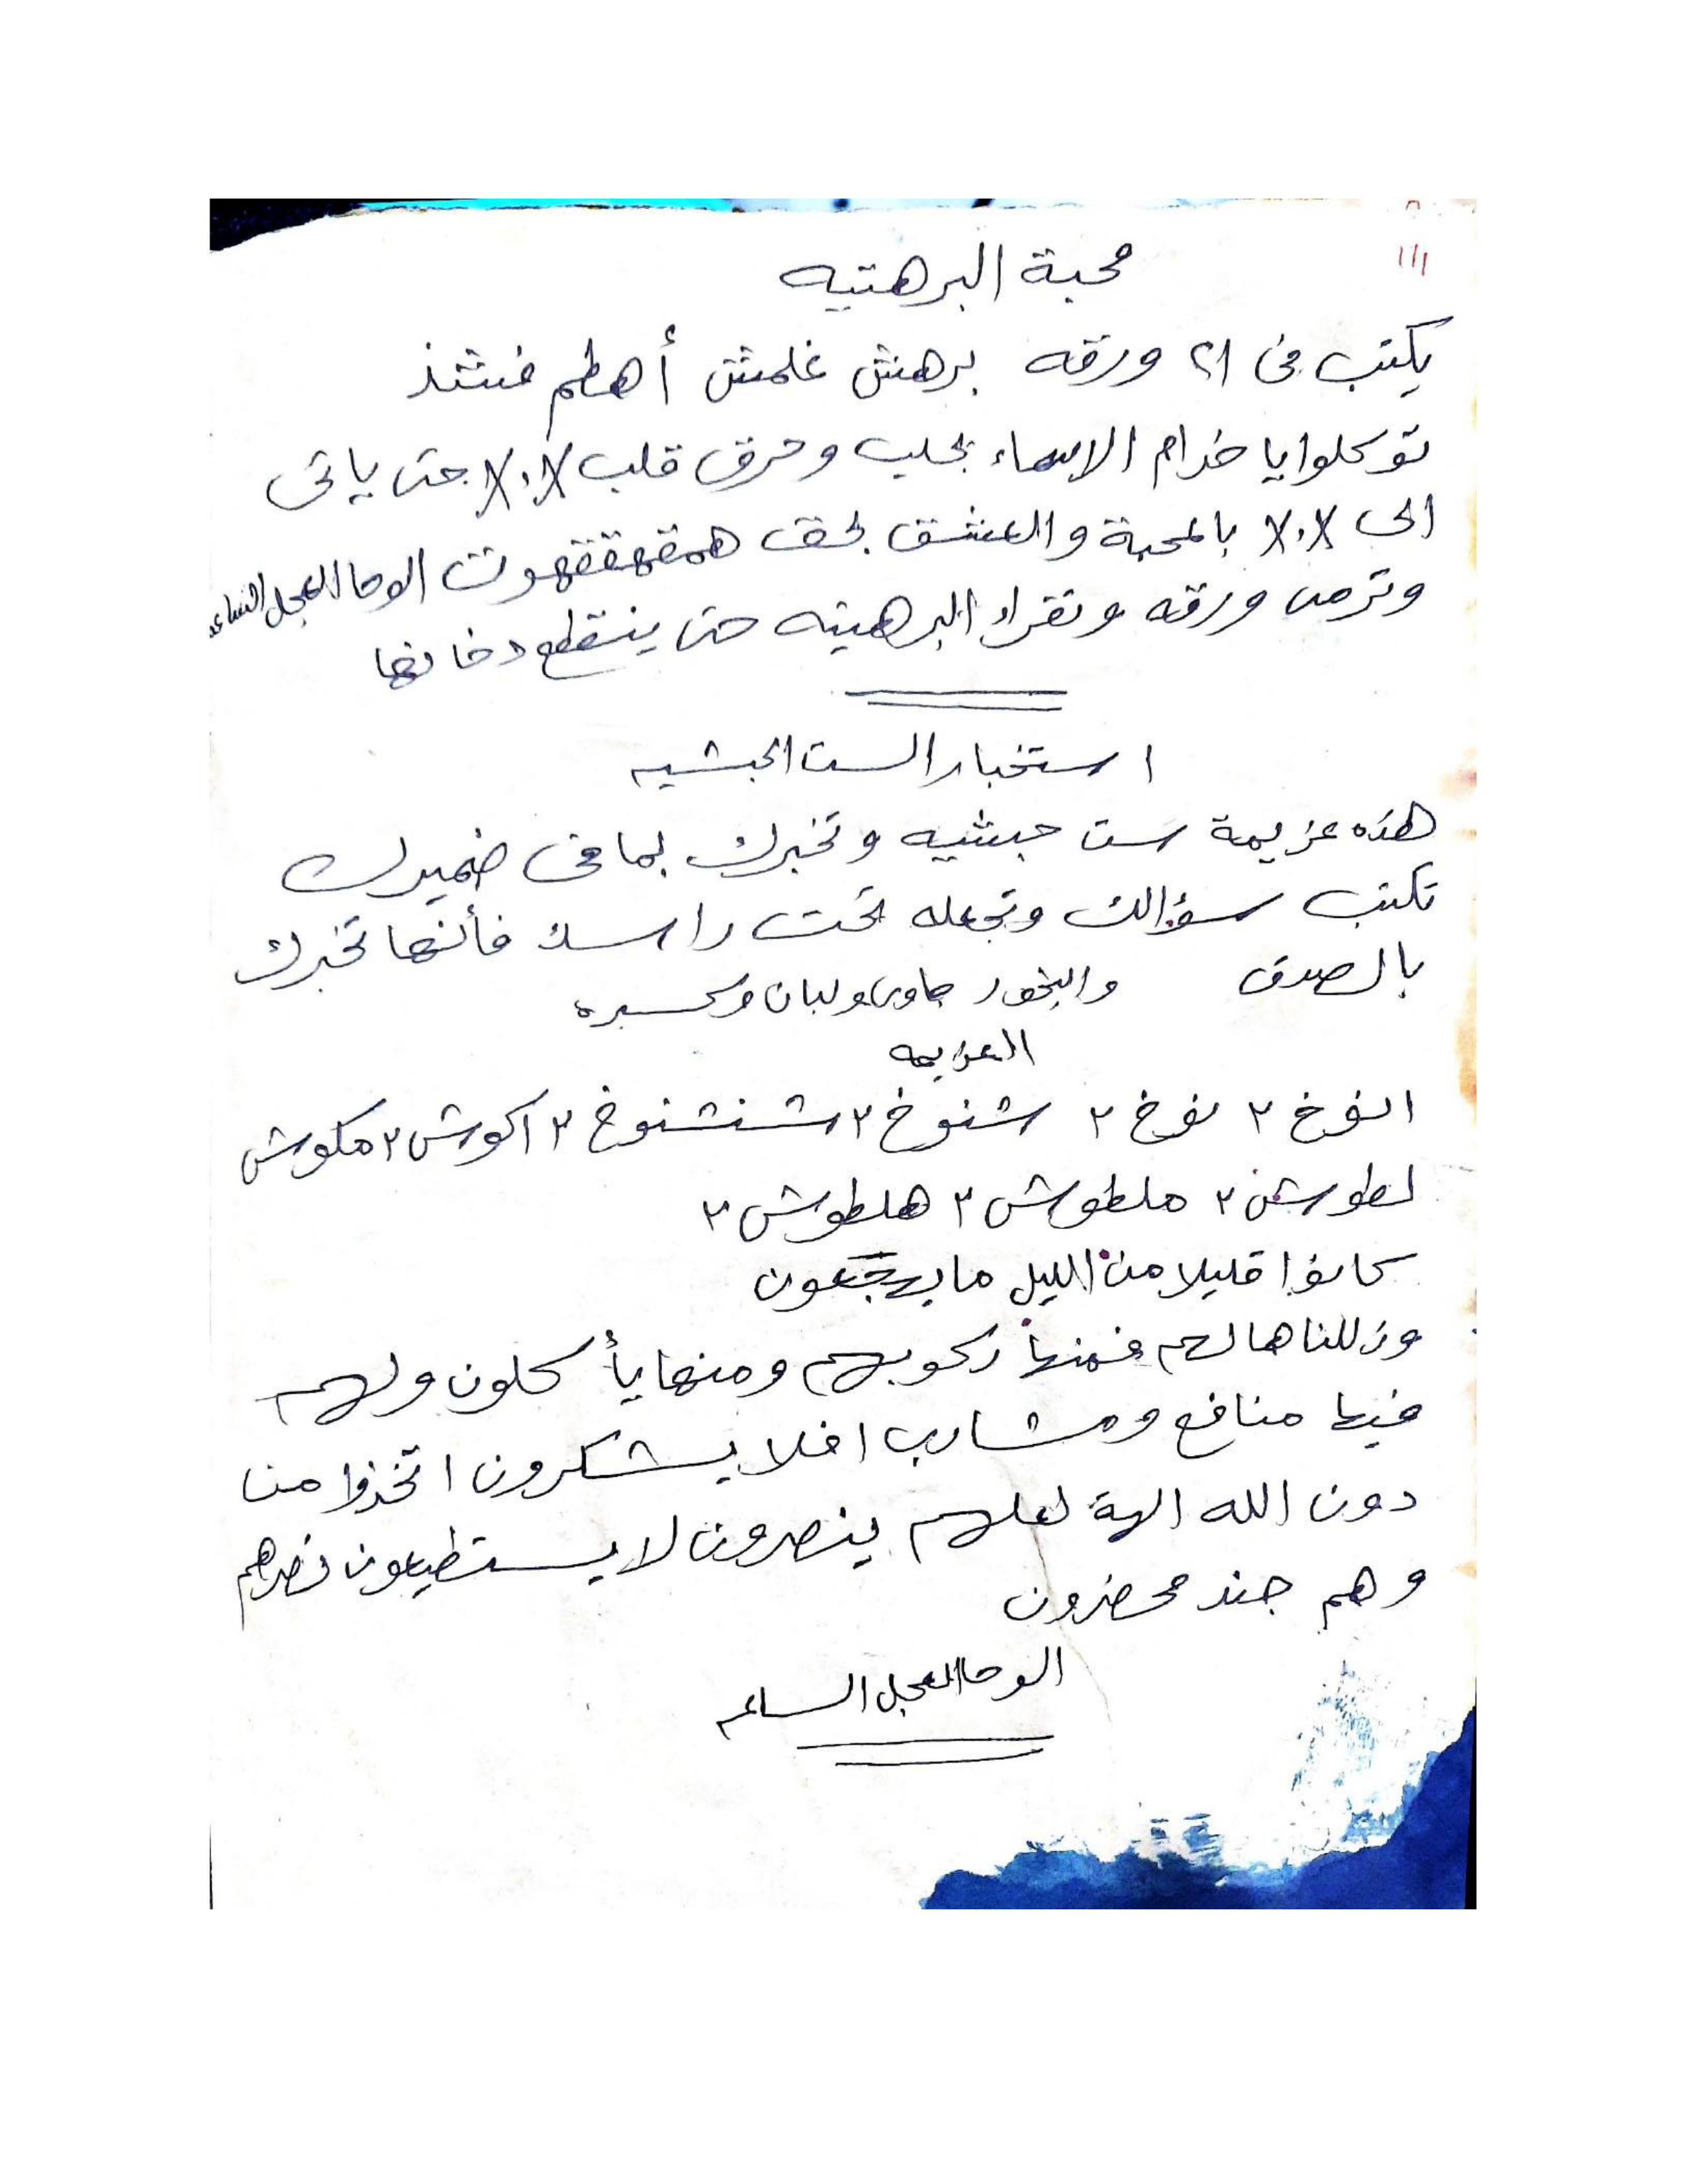 ١١١
محبة البرهتيه
يكتب فى ٢١ ورقه برهش غلمش أهطم فشذ
توكلوا يا خدام الاسماء بجلب وحرق قلب X.X حتى ياتى
الى X.X بالمحبة والعشق بحق همقهقهوت الوحا العجل الساعه
وترمى ورقه وتقراء البرهتيه حتى ينقطع دخانها
استخبار الست الحبشيه
هذه عزيمة ست حبشيه وتخبرك بما فى ضميرك
تكتب سؤالك وتجعله تحت راسك فأنها تخبرك
بالصدق والبخور جاوى ولبان وكسبره
العزيمه
انوخ ٢ نوخ ٢ شنوخ ٢ شنشنوخ ٢ اكوش ٢ مكوش
لطوش ٢ ملطوش ٢ هلطوش ٢
كانوا قليلا من الليل ما يهجعون
وذللناها لهم فمنها ركوبهم ومنها يأكلون ولهم
فيها منافع ومشارب افلا يشكرون اتخذوا من
دون الله الهة لعلهم ينصرون لا يستطيعون نصرهم
وهم جند محضرون
الوحا العجل الساعه